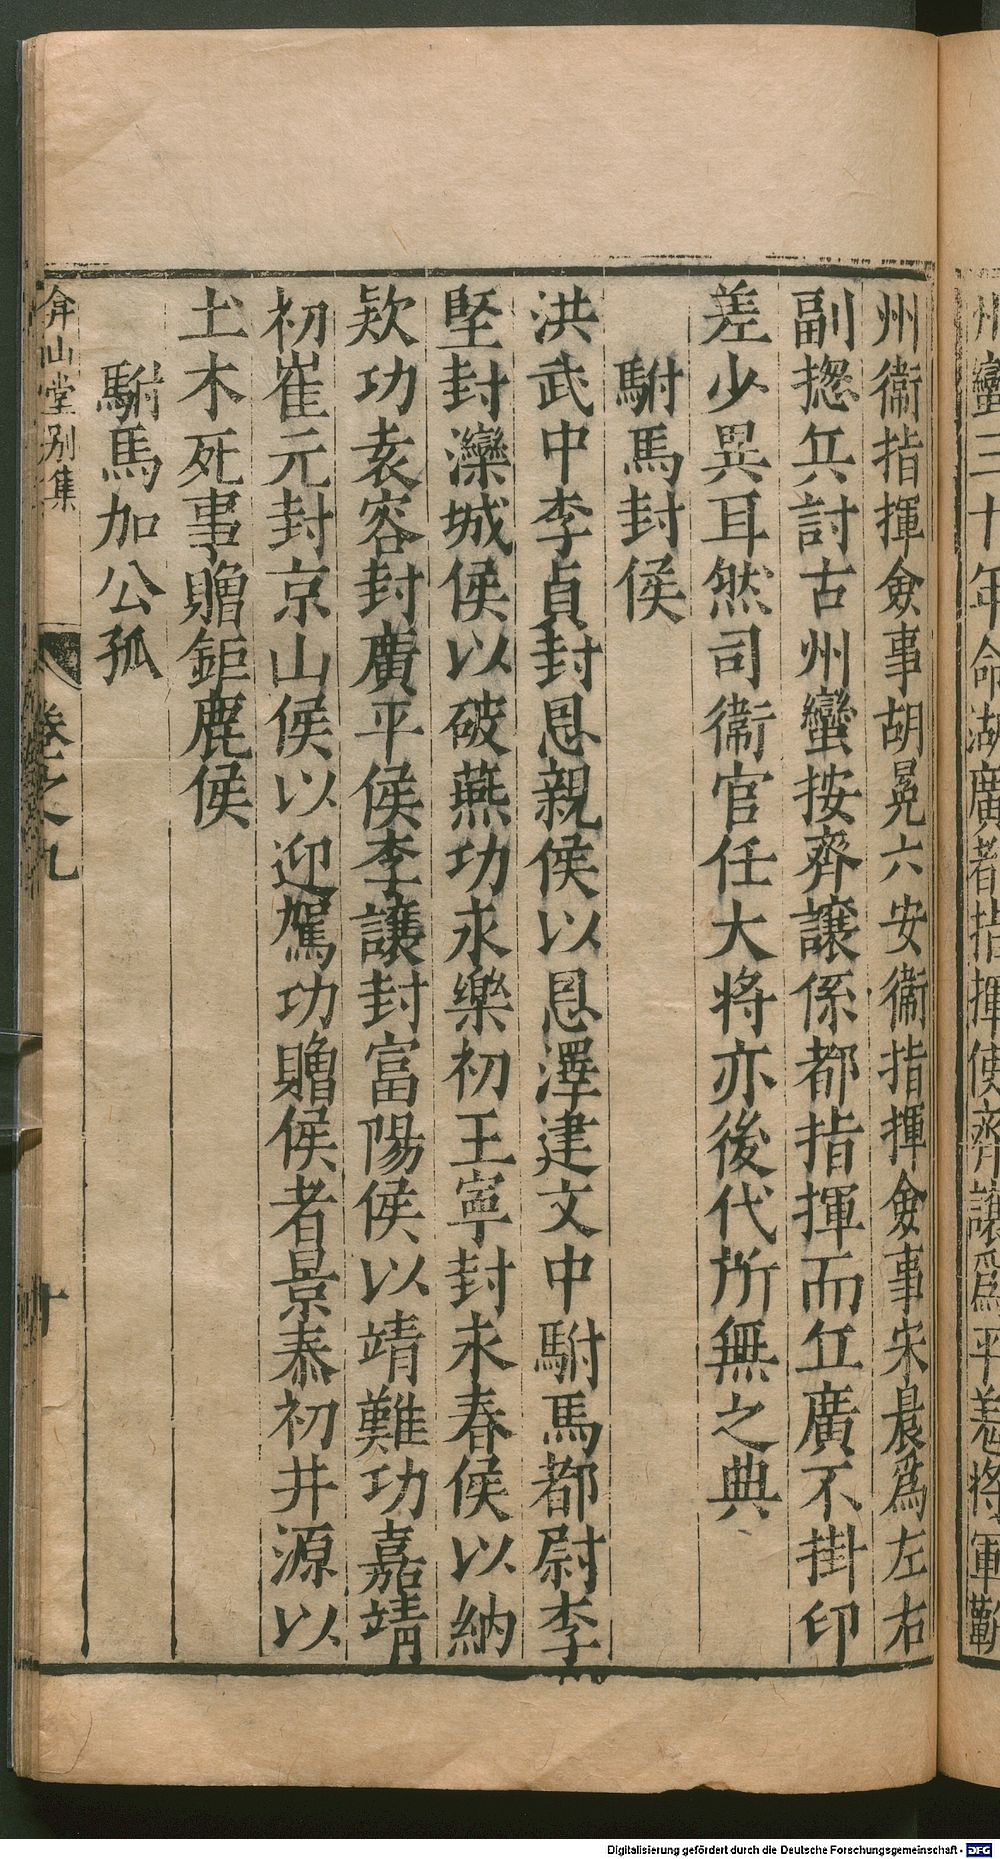 州蠻三十年命湖廣者指揮使齊讓爲平羌將軍勒
州衞指揮僉事胡冕六安衞指揮僉事宋晨爲左右
副揔兵討古州蠻按齊讓係都指揮而江廣不掛印
差少異耳然司衞官任大將亦後代所無之典
駙馬封侯
洪武中李貞封恩親侯以恩澤建文中駙馬都尉李
堅封灤城侯以破燕功永樂初王寧封永春侯以納
欵功袁容封廣平侯李讓封富陽侯以靖難功嘉靖
初崔元封京山侯以迎駕功贈侯者景泰初井源以
土木死事贈鉅鹿侯
駙馬加公孤
弇山堂別集 卷之九 十
Digitalisierung gefördert durch die Deutsche Forschungsgemeinschaft - DFG